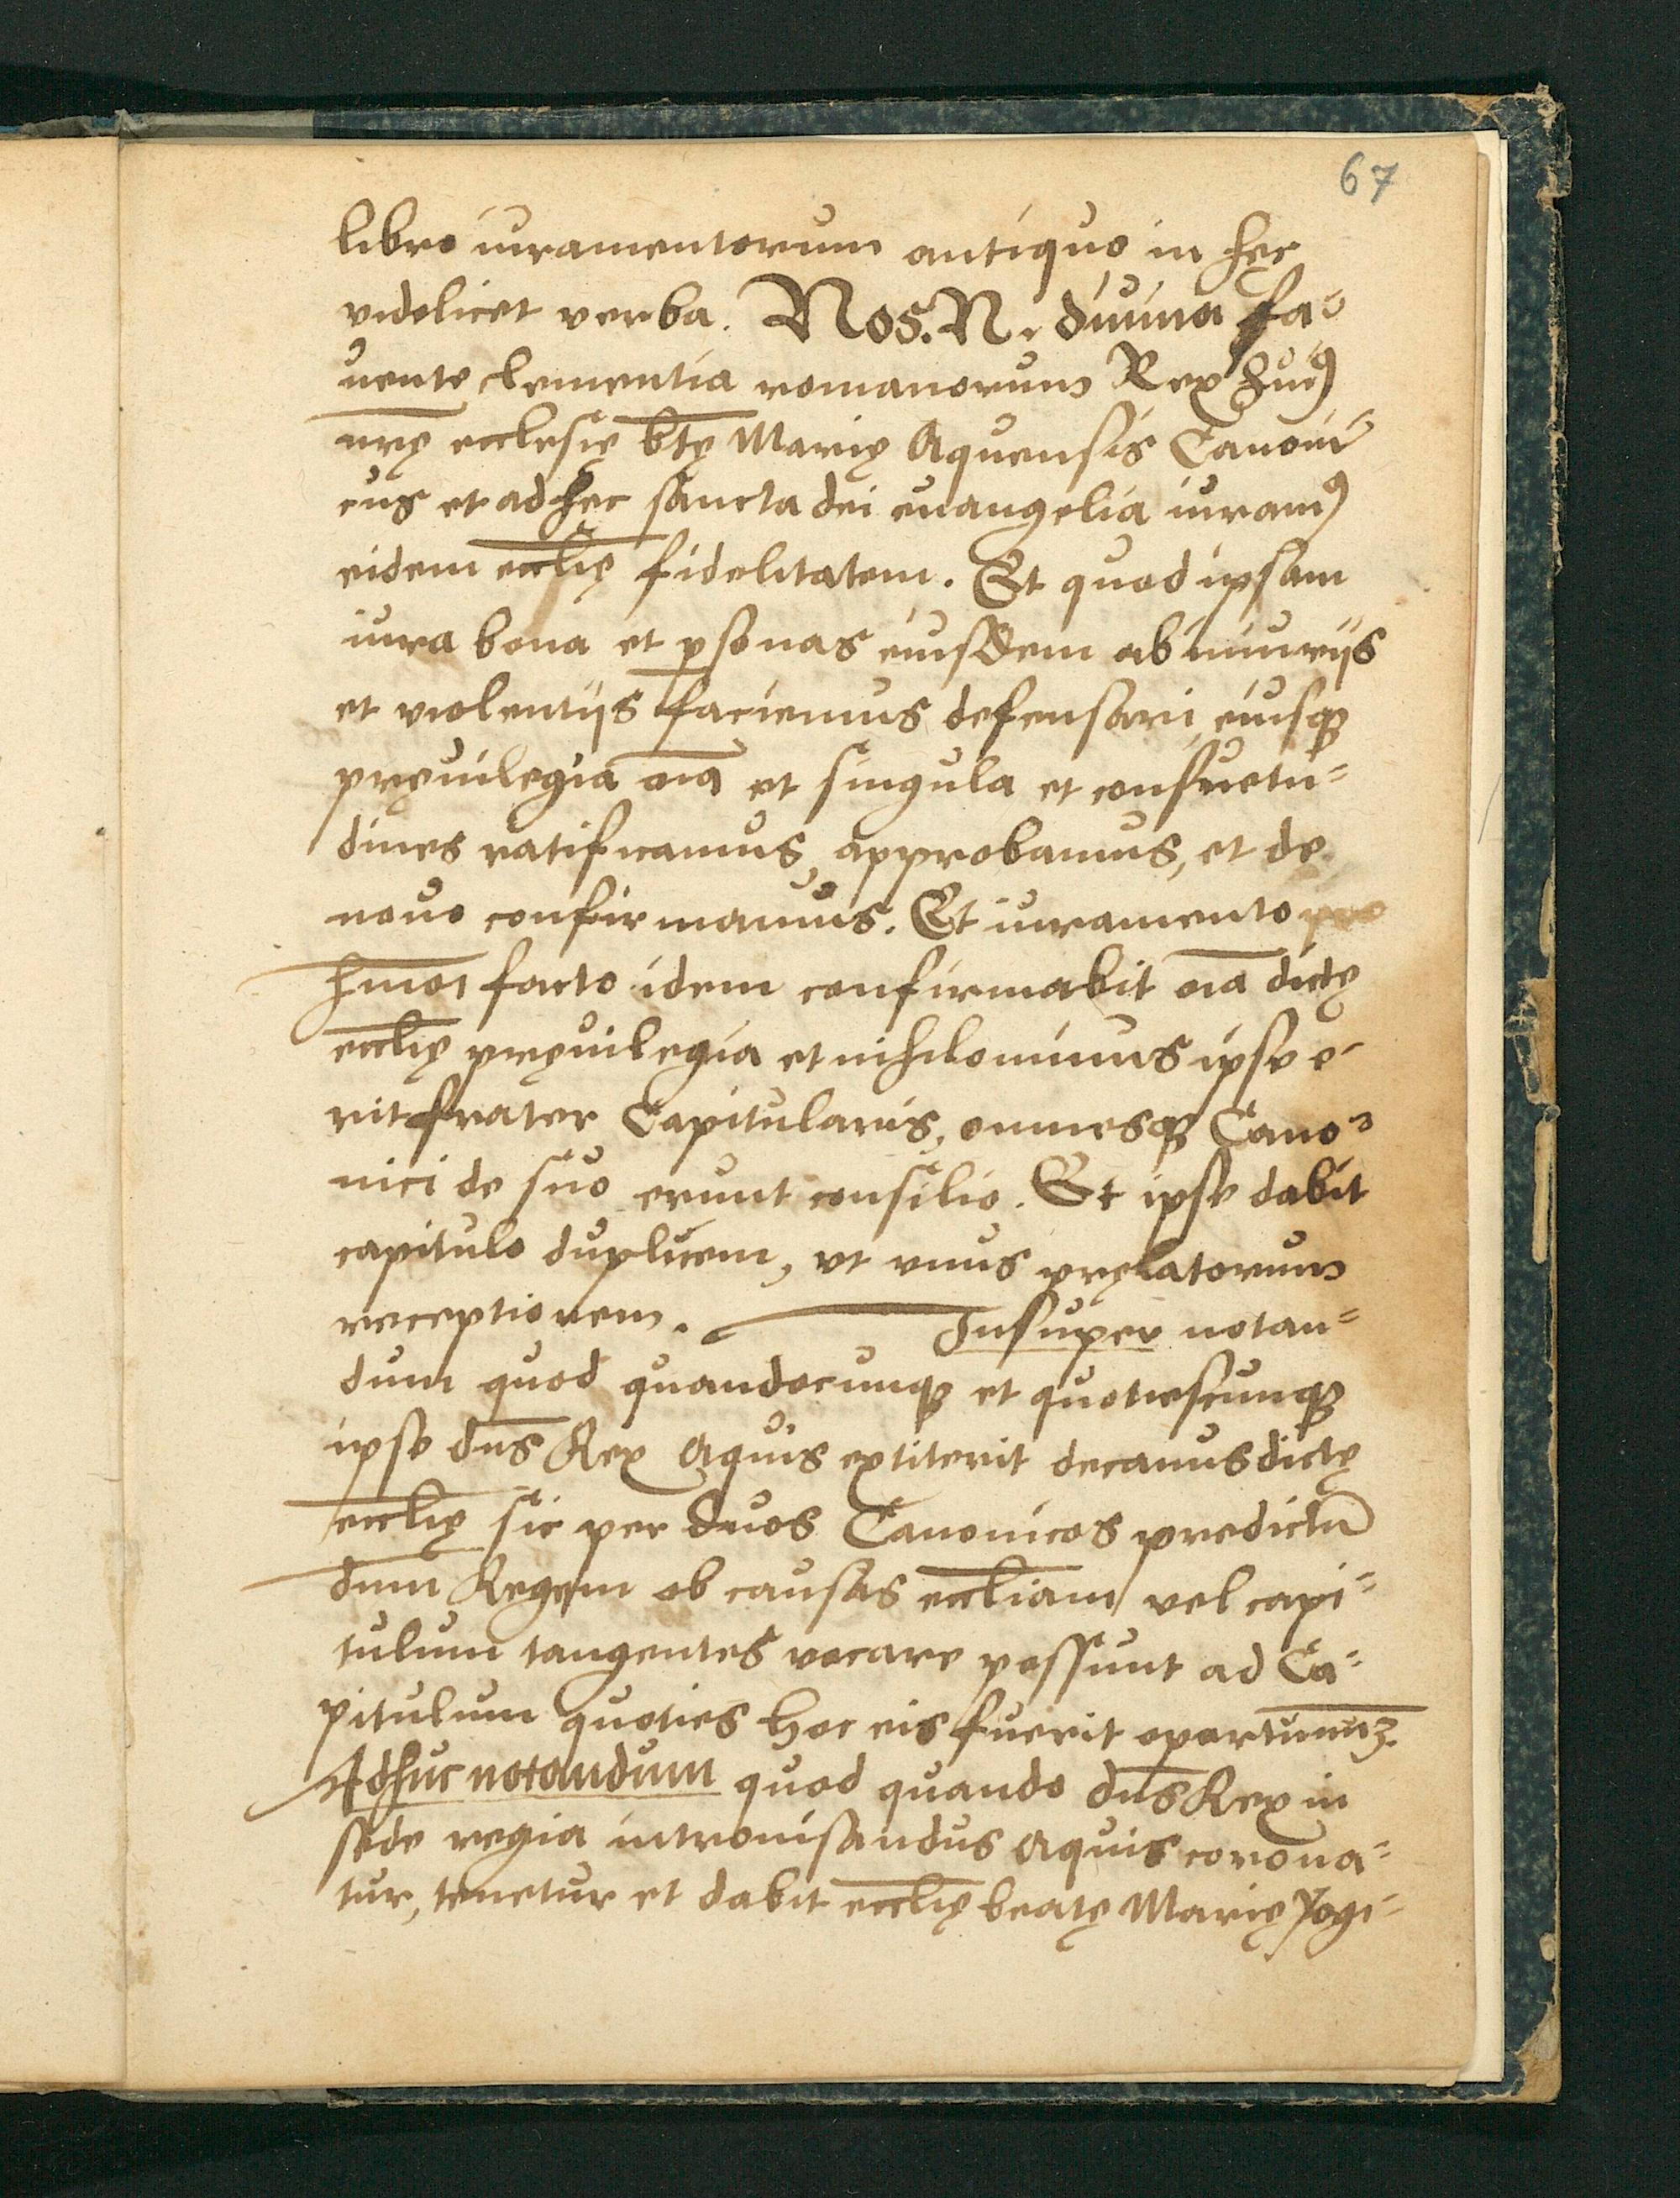 67
libro iuramentorum antiquo in hęc
videlicet verba. Nos. N. diuina fa-
uente clementia romanorum Rex huiꝰ
nrę ecclesię btę Marię Aquensis Canoni-
cus et ad hec sancta dei euangelia iuramꝰ
eidem ecclię fidelitatem. Et quod ipsam
iura bona et psonas eiusdem ab iniurijs
et violentijs faciemus defensari, eiusqȝ
pręuilegia oīa et singula et consuetu=
dines ratificamus, approbamus, et de
nouo confirmamus. Et iuramento pro
hmoi facto idem confirmabit oīa dictę
ecclię pręuilegia et nihilominus ipse e-
rit frater Capitularis, omnesqȝ Cano=
nici de suo erunt consilio. Et ipse dabit
capitulo duplicem, vt vnus pręlatorum
receptionem. Insuper notan=
dum quod quandocunqȝ et quotiescunqȝ
ipse dns Rex Aquis extiterit decanus dictę
ecclię sic per duos Canonicos predictū
dnm Regem ob causas eccliam vel capi=
tulum tangentes vocare possunt ad Ca=
pitulum quoties hoc eis fuerit oportunuȝ.
Adhuc notandum quod quando dns Rex in
sede regia intronisandus Aquis corona=
tur, tenetur et dabit ecclię beatę Marię Vogi-